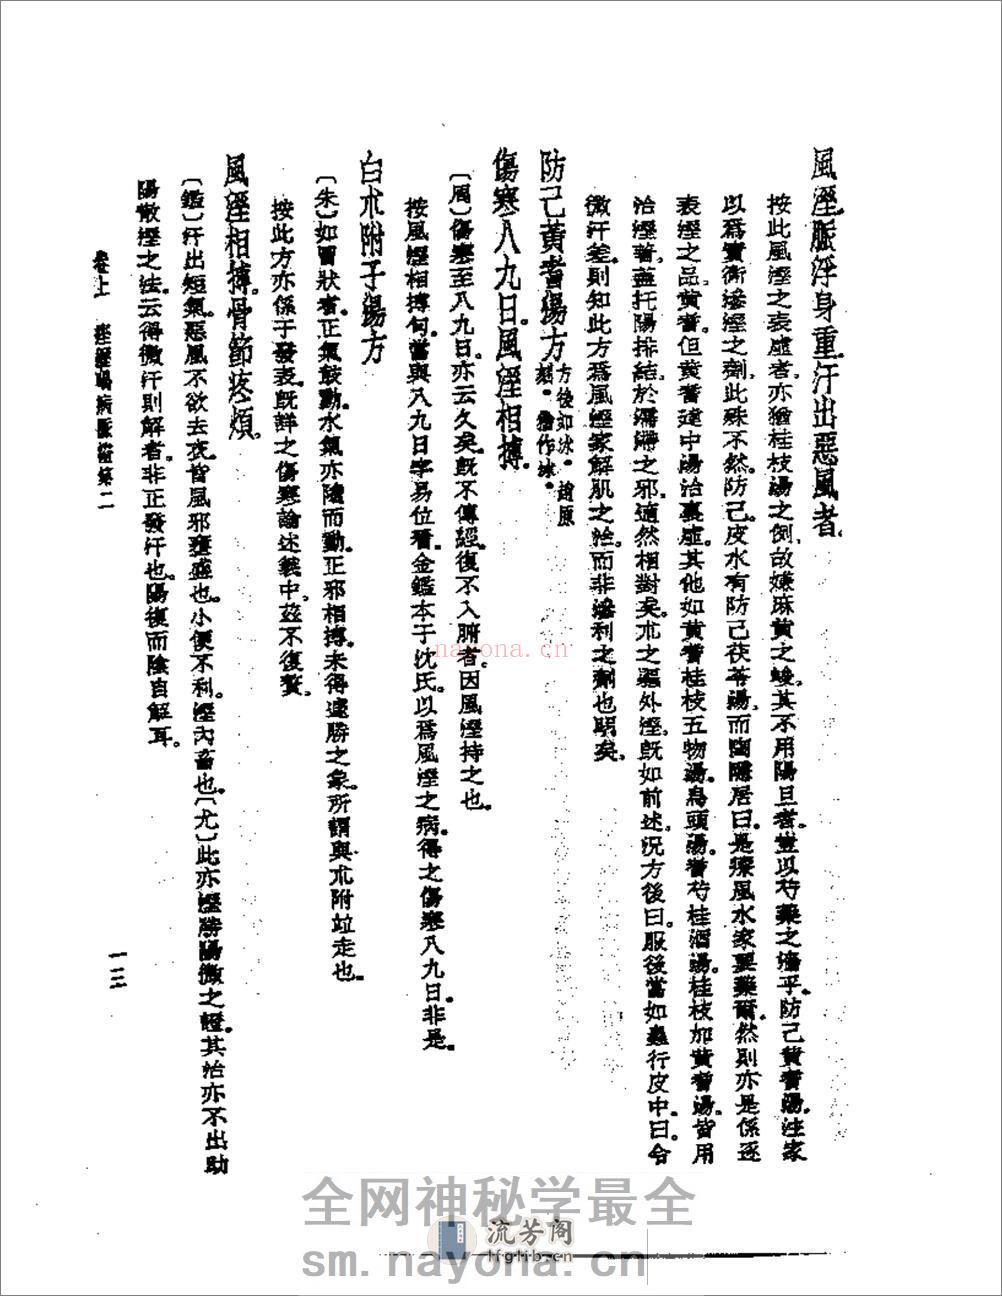 風溼脈浮身重汗出惡風者。
按此風溼之表虛者。亦猶桂枝湯之例。故嫌麻黃之峻。其不用陽旦者。豈以芍藥之墻乎。防己黃耆湯。注家
以爲實衛滲溼之劑。此殊不然。防己。皮水有防己茯苓湯。而陶隱居曰。是療風水家要藥爾。然則亦是係逐
表溼之品。黃耆。但黃耆建中湯治裏虛。其他如黃耆桂枝五物湯。烏頭湯。耆芍桂酒湯。桂枝加黃耆湯。皆用
治溼著。蓋托陽排結。於濡滯之邪。適然相對矣。朮之驅外溼。旣如前述。況方後曰。服後當如蟲行皮中。曰。令
微汗差。則知此方爲風溼家解肌之治。而非滲利之劑也明矣。
防己黃耆湯方 方後如冰。趙原
刻。 作冰。
傷寒八九日。風溼相搏。
〔周〕傷寒至八九日。亦云久矣。旣不傳經。復不入腑者。因風溼持之也。
按風溼相搏句。當與八九日字易位看。金鑑本于沈氏。以爲風溼之病。得之傷寒八九日。非是。
白朮附子湯方
〔朱〕如冒狀者。正氣鼓動。水氣亦隨而動。正邪相搏。未得遽勝之象。所謂與朮附竝走也。
按此方亦係于發表。旣詳之傷寒論述義中。茲不復贅。
風溼相搏。骨節疼煩。
〔鑑〕汗出短氣。惡風不欲去衣。皆風邪壅盛也。小便不利。溼內畜也。〔尤〕此亦溼勝陽微之證。其治亦不出助
陽散溼之法。云得微汗則解者。非正發汗也。陽復而陰自解耳。
卷上 痙溼暍病脈證第二
一三
nayona.cn
全网神秘学最全
流芳阁
lfglib.cn
sm.nayona.cn